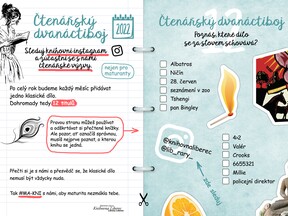 Čtenářský
dvanáctiboj
2022
Sleduj knihovní instagram
a zúčastni se s námi
čtenářské výzvy.
nejen pro
maturanty
Po celý rok budeme každý měsíc přidávat
jedno klasické dílo.
Dohromady tedy 12 titulů.
Pravou stranu můžeš používat
a odškrtávat si přečtené knížky.
Ale pozor, ať označíš správnou,
musíš nejprve poznat, o kterou
knihu se jedná.
Přečti si je s námi a přesvědč se, že klasická dílo
nemusí být vždy otrava.
Tak #MRK-KNI a nám, aby maturita nezmákla tebe.
Čtenářský dvanáctiboj
Poznáš, které dílo
se za slovem schovává?
Albatros
Ničín
28. červen
seznamování v zoo
Tshengi
pan Bingley
@knihovnaliberec
@lib_rary_
zde sleduj
4v2
Valér
Crooks
6655321
Millie
policejní direktor